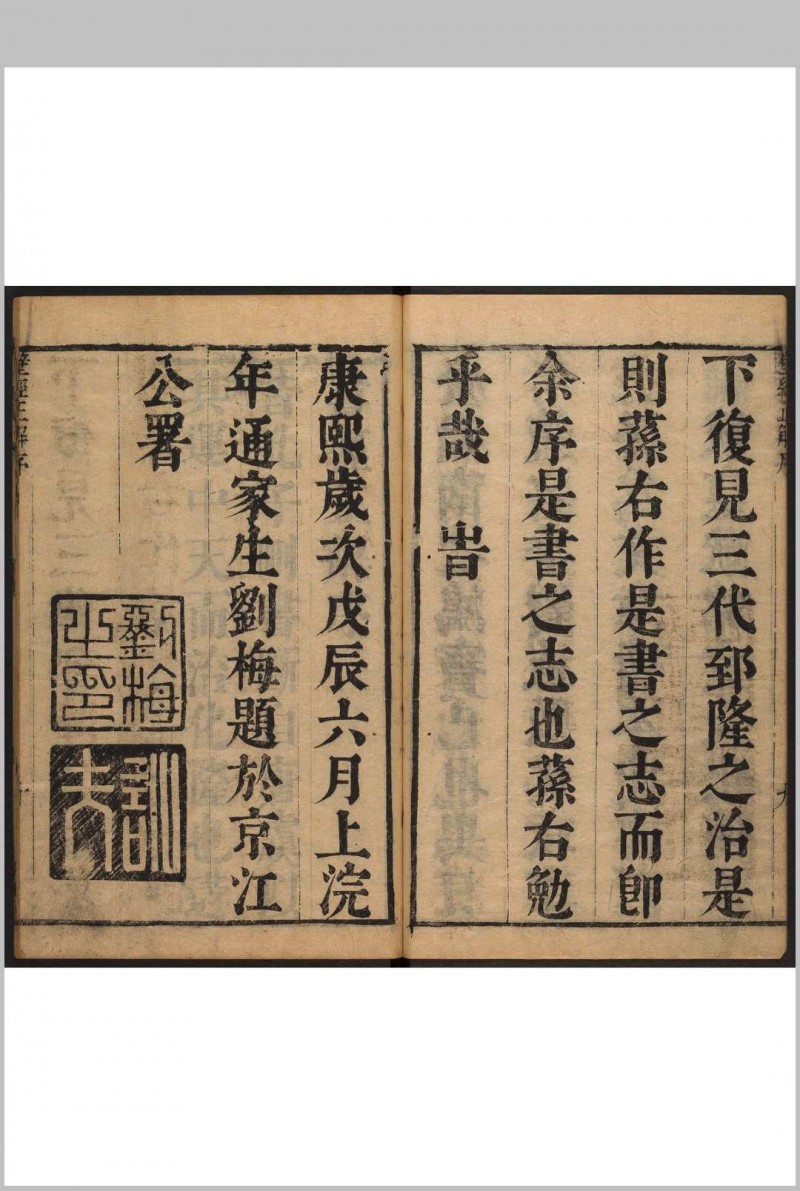 下復見三代郅隆之治是
則蓀右作是書之志而卽
余序是書之志也蓀右勉
乎哉 旹
康熙歲次戊辰六月上浣
年通家生劉梅題於京江
公署
劉梅之印